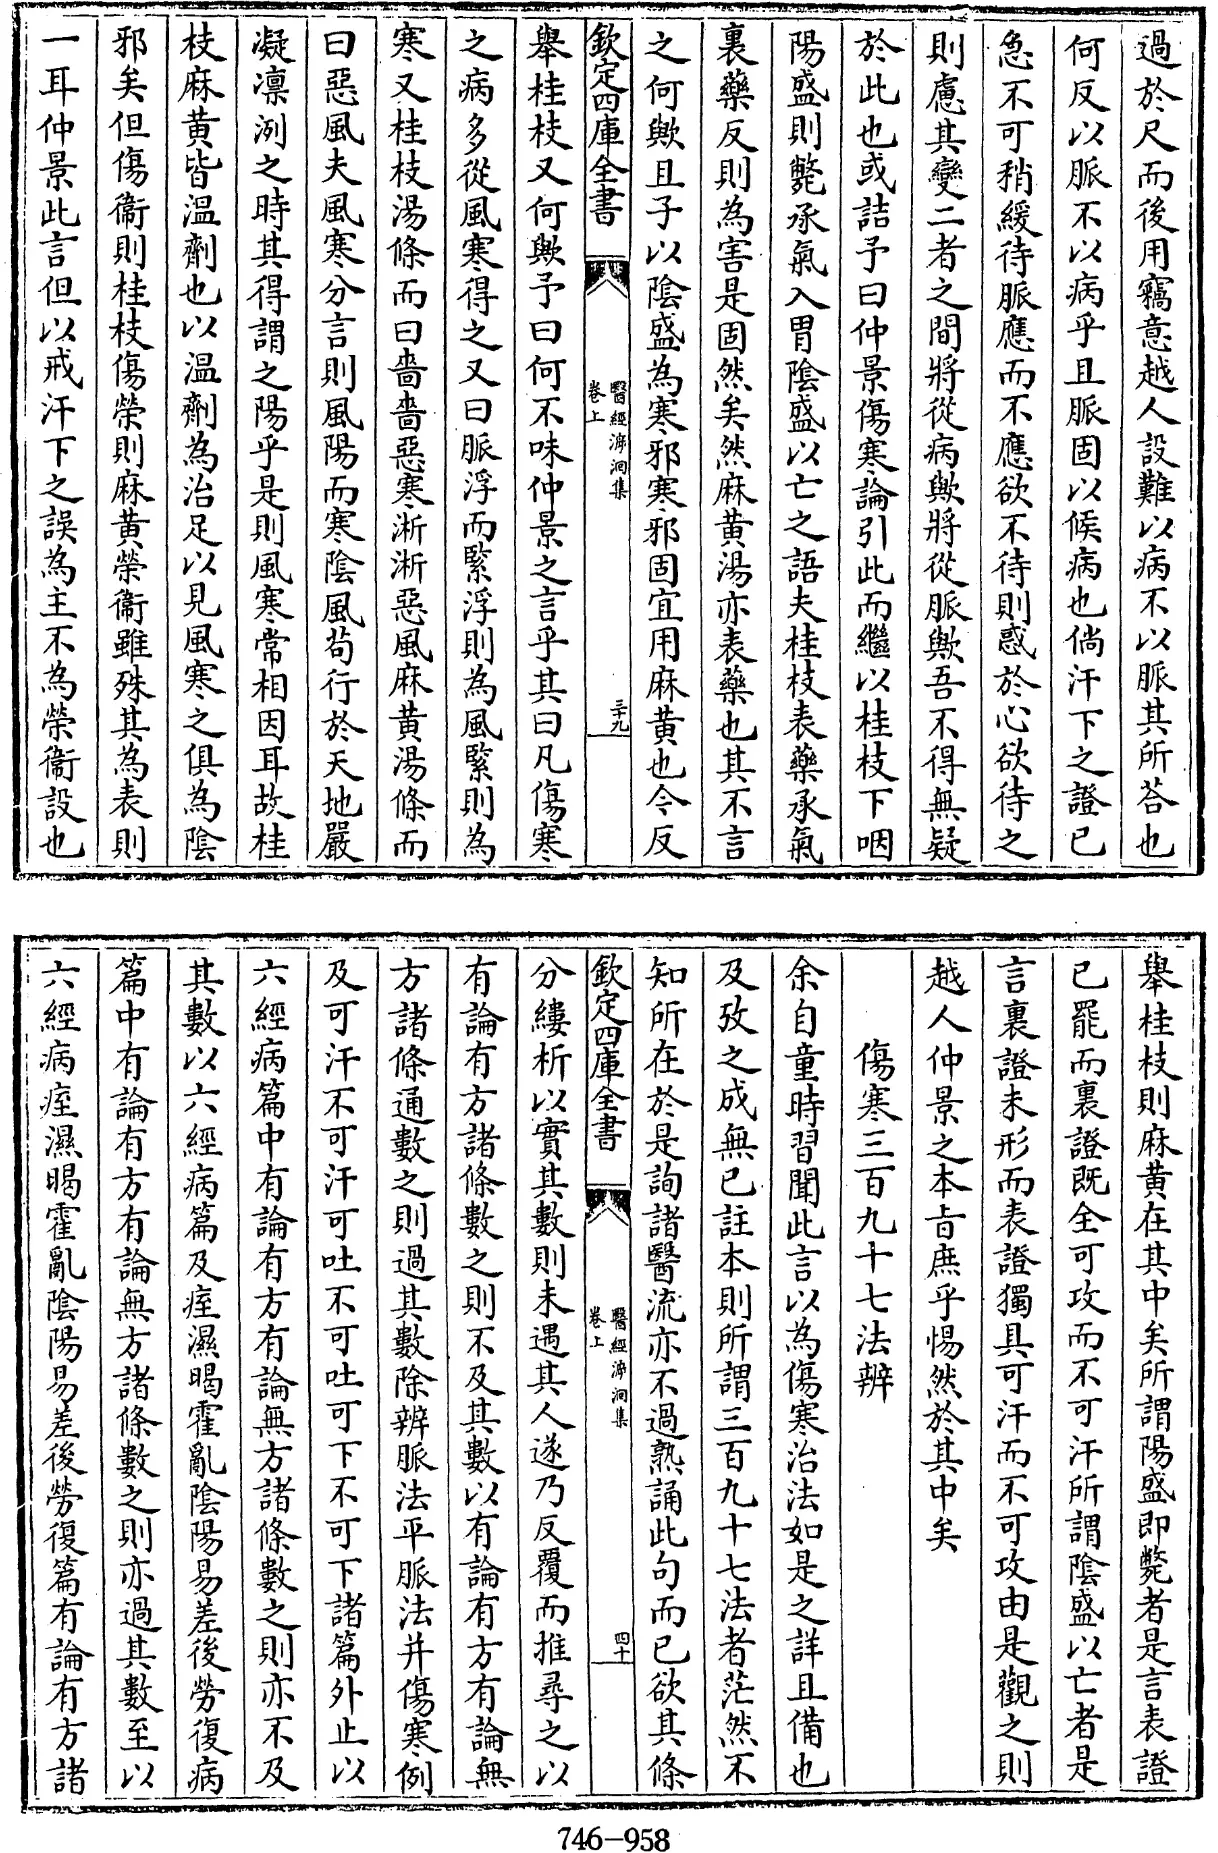 過於尺而後用竊意越人設難以病不以脈其所荅也
何反以脈不以病乎且脈固以候病也倘汗下之證已
急不可稍緩待脈應而不應欲不待則惑於心欲待之
則慮其變二者之間將從病歟將從脈歟吾不得無疑
於此也或詰予曰仲景傷寒論引此而繼以桂枝下咽
陽盛則斃承氣入胃陰盛以亡之語夫桂枝表藥承氣
裏藥反則為害是固然矣然麻黄湯亦表藥也其不言
之何歟且子以陰盛為寒邪寒邪固宜用麻黄也今反
欽定四庫全書
醫經溯洄集
卷上
三十九
舉桂枝又何歟予曰何不味仲景之言乎其曰凡傷寒
之病多從風寒得之又曰脈浮而緊浮則為風緊則為
寒又桂枝湯條而曰嗇嗇惡寒淅淅惡風麻黄湯條而
曰惡風夫風寒分言則風陽而寒陰風茍行於天地嚴
凝凛冽之時其得謂之陽乎是則風寒常相因耳故桂
枝麻黄皆温劑也以温劑為治足以見風寒之俱為陰
邪矣但傷衞則桂枝傷榮則麻黄榮衞雖殊其為表則
一耳仲景此言但以戒汗下之誤為主不為榮衞設也
舉桂枝則麻黄在其中矣所謂陽盛即斃者是言表證
已罷而裏證既全可攻而不可汗所謂陰盛以亡者是
言裏證未形而表證獨具可汗而不可攻由是觀之則
越人仲景之本旨庶乎惕然於其中矣
傷寒三百九十七法辨
余自童時習聞此言以為傷寒治法如是之詳且備也
及攷之成無已註本則所謂三百九十七法者茫然不
知所在於是詢諸醫流亦不過熟誦此句而已欲其條
欽定四庫全書
醫經溯洄集
卷上
四十
分縷析以實其數則未遇其人遂乃反覆而推尋之以
有論有方諸條數之則不及其數以有論有方有論無
方諸條通數之則過其數除辨脈法平脈法并傷寒例
及可汗不可汗可吐不可吐可下不可下諸篇外止以
六經病篇中有論有方有論無方諸條數之則亦不及
其數以六經病篇及痓濕暍霍亂陰陽易差後勞復病
篇中有論有方有論無方諸條數之則亦過其數至以
六經病痓濕暍霍亂陰陽易差後勞復篇有論有方諸
746-958